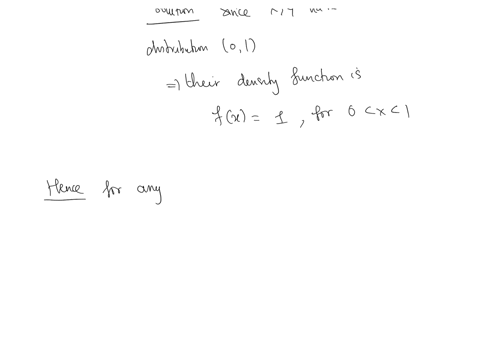 since
distribution (0,1)
=> their density function is
f(x) = 1, for 0 < x < 1
Hence for any